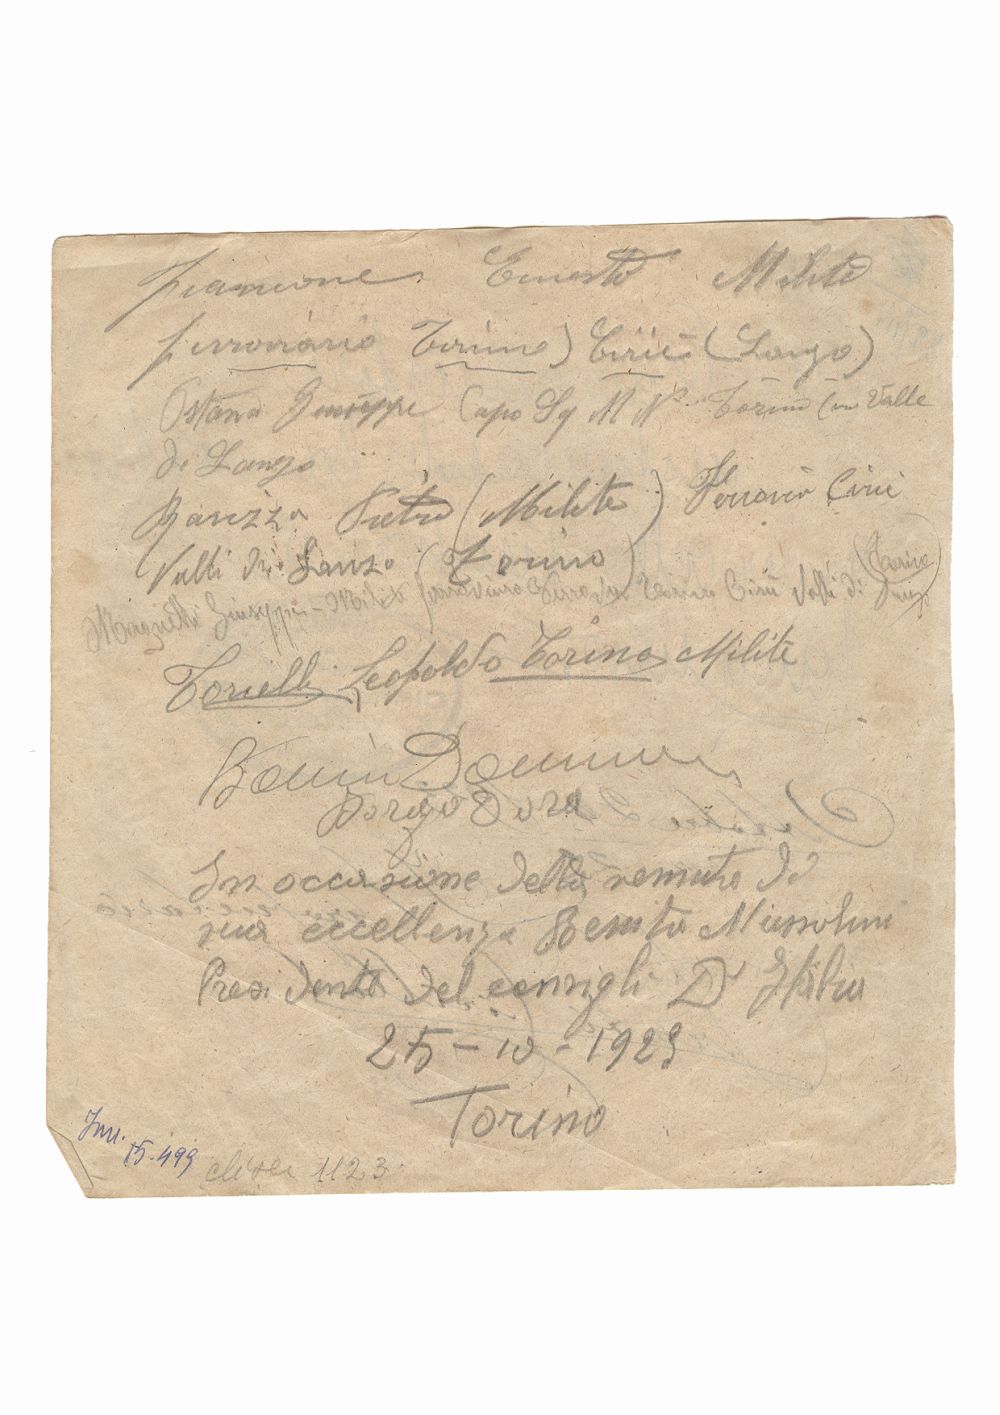 Ernesto Milite
ferroviario Torino) Ciriè (Lanzo)
Ostana Giuseppe Capo Sq M N Torino Valle
di Lanzo
Barizza Pietro (Milite) Ferrovia Cirie
Valli di Lanzo (Torino)
Giuseppe - Milite Torino Ciriè Valli di Lanzo (Torino)
Torielli Leopoldo Torino Milite
Borgo Dora
In occasione della venuta di
sua eccellenza Benito Mussolini
Presidente del consigli D' Italia
25-10-1923
Torino
Inv.
15.499 1123